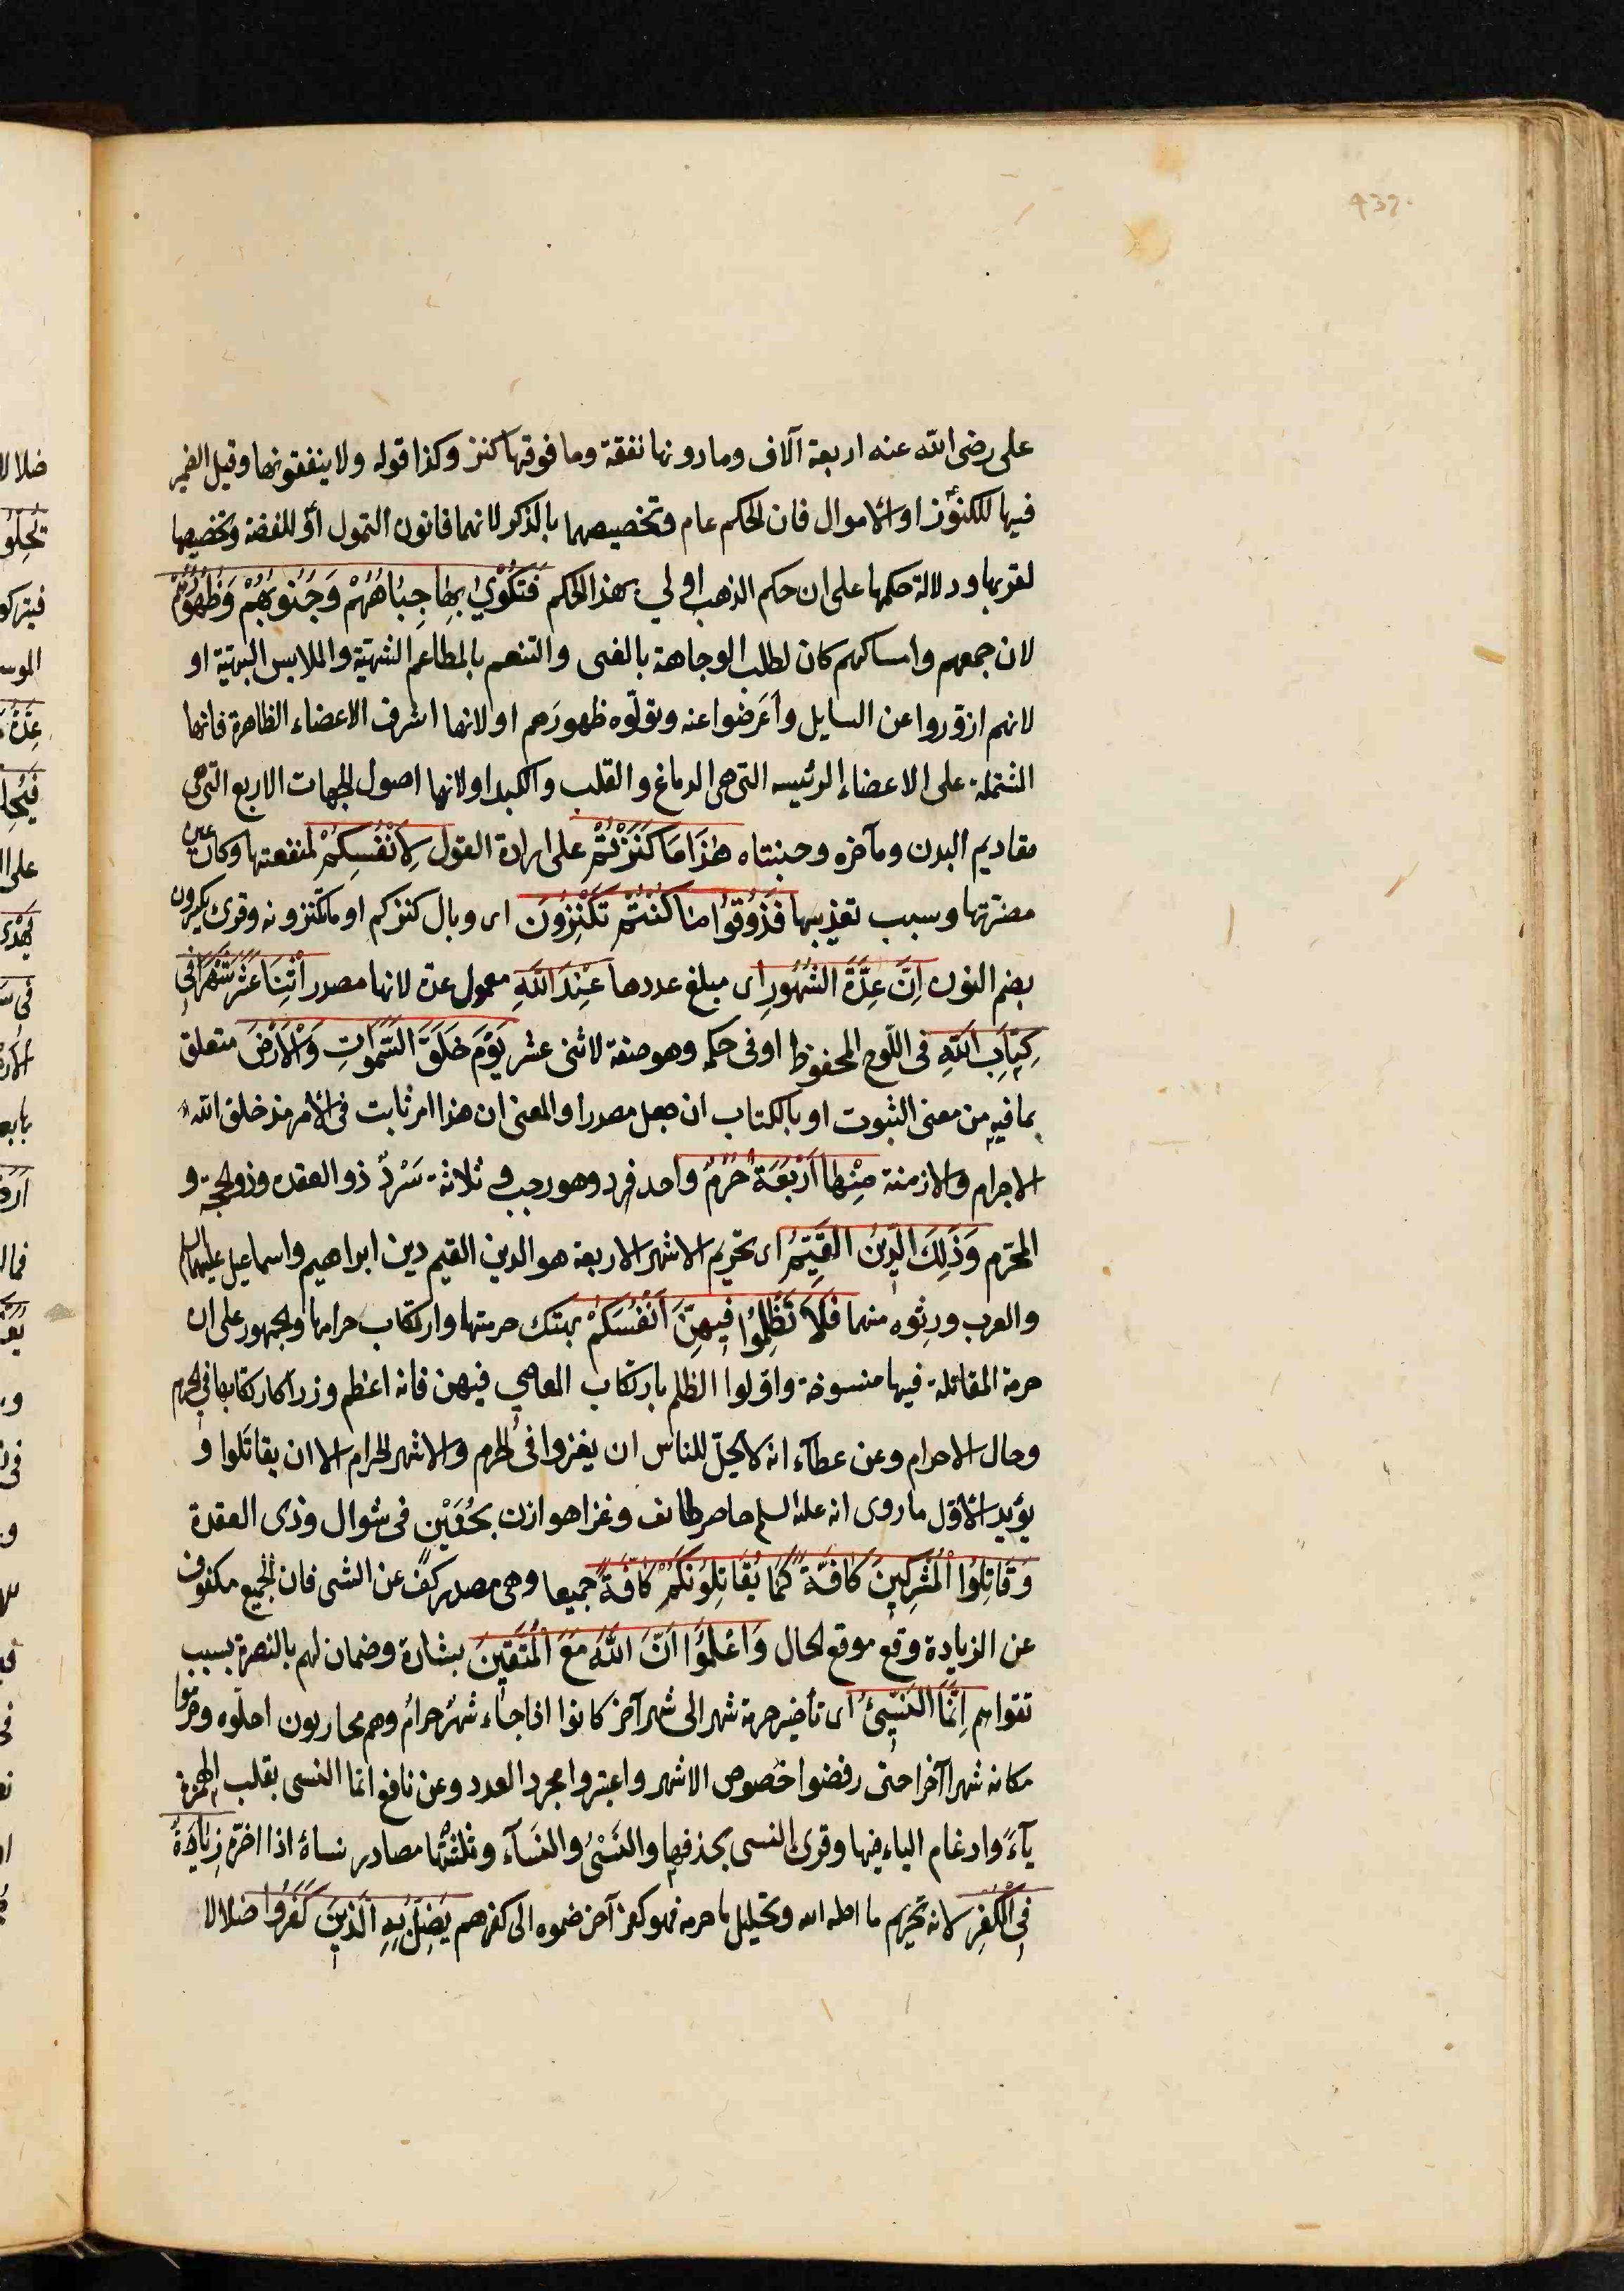 439
على رضى الله عنه اربعة آلاف وما دونها نفقة وما فوقها كنز وكذا قوله ولا ينفقونها وقيل الضمير
فيها للكنوز او الاموال فان الحكم عام وتخصيصهما بالذكر لانهما قانون التمول او للفضة وتخصيصها
لقربها ودلالة حكمها على ان حكم الذهب اولى بهذا الحكم فَتُكْوٰى بِهَا جِبَاهُهُمْ وَجُنُوبُهُمْ وَظُهُورُهُمْ
لان جمعهم وامساكهم كان لطلب الوجاهة بالغنى والتنعم بالمطاعم الشهية والملابس البهية او
لانهم ازوروا عن السايل وأعرضوا عنه وتولوه ظهورهم او لانها اشرف الاعضاء الظاهرة فانها
المشتملة على الاعضاء الرئيسه التى هى الدماغ والقلب والكبد او لانها اصول الجهات الاربع التى هى
مقاديم البدن ومآخره وجنبتاه هٰذَا مَا كَنَزْتُمْ على ارادة القول لِأَنْفُسِكُمْ لمنفعتها وكان عين
مضرتها وسبب تعذيبها فَذُوقُوا مَا كُنْتُمْ تَكْنِزُونَ اى وبال كنزكم او ما تكنزونه وقرئ تكنزون
بضم النون اِنَّ عِدَّةَ الشُّهُورِ اى مبلغ عددها عِنْدَ اللّٰهِ معمول عدة لانها مصدر اثْنَا عَشَرَ شَهْرًا فِى
كِتَابِ اللّٰهِ فى اللوح المحفوظ او فى حكمه وهو صفة لاثنى عشر يَوْمَ خَلَقَ السَّمٰوَاتِ وَالْاَرْضَ متعلق
بما فيه من معنى الثبوت او بالكتاب ان جعل مصدرا والمعنى ان هذا امر ثابت فى الأمر مذ خلق الله
الاجرام والازمنة مِنْهَا اَرْبَعَةٌ حُرُمٌ واحد فرد وهو رجب و ثلاثة سَرْدٌ ذو القعدة وذو الحجة و
المحرّم وَذٰلِكَ الدِّينُ الْقَيِّمُ اى تحريم الاشهر الاربعة هو الدين القيم دين ابراهيم واسماعيل عليهما السلم
والعرب ورثوه منهما فَلَا تَظْلِمُوا فِيهِنَّ اَنْفُسَكُمْ بهتك حرمتها وارتكاب حرامها والجمهور على ان
حرمة المقاتلة فيها منسوخة واولوا الظلم بارتكاب المعاصى فيهن فانه اعظم وزرا كارتكابها فى الحرم
وحال الاحرام وعن عطآء انه لا يحلّ للناس ان يغزوا فى الحرم والاشهر الحرام الا ان يقاتلوا و
يؤيد الاوّل ما روى انه عليه السلم حاصر طائف وغزا هوازن بحنين فى شوال وذى القعدة
وَقَاتِلُوا الْمُشْرِكِينَ كَافَّةً كَمَا يُقَاتِلُونَكُمْ كَافَّةً جميعا وهى مصدر كفّ عن الشى فان الجميع مكفوف
عن الزيادة وقع موقع الحال وَاعْلَمُوا اَنَّ اللّٰهَ مَعَ الْمُتَّقِينَ بشارة وضمان لهم بالنصرة بسبب
تقواهم اِنَّمَا النَّسِىءُ اى تأخير حرمة شهر الى شهر آخر كانوا اذا جاء شهر حرام وهم محاربون احلّوه وحرّموا
مكانه شهرا آخر حتى رفضوا خصوص الاشهر واعتبروا مجرد العدد وعن نافع انما النسى بقلب الهمزة
يآءً وادغام الياء فيها وقرئ النسى بحذفها والنَسْئُ والنَسآء وثلثتها مصادر نسأهُ اذا اخّره زِيَادَةٌ
فِى الْكُفْرِ لانه تحريم ما احله الله وتحليل ما حرمه فهو كفر آخر ضموه الى كفرهم يُضَلُّ بِهِ الَّذِينَ كَفَرُوا ضلالا